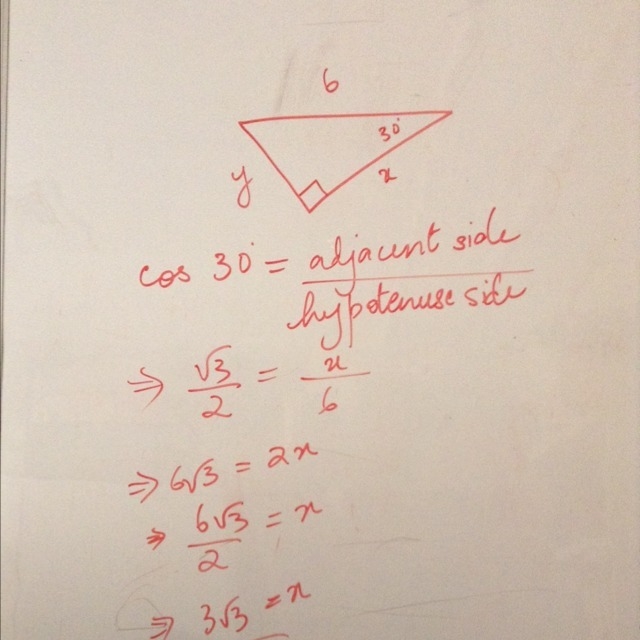 6
30°
y
x
cos 30° = adjacent side / hypotenuse side
⇒ √3/2 = x/6
⇒ 6√3 = 2x
⇒ 6√3/2 = x
⇒ 3√3 = x